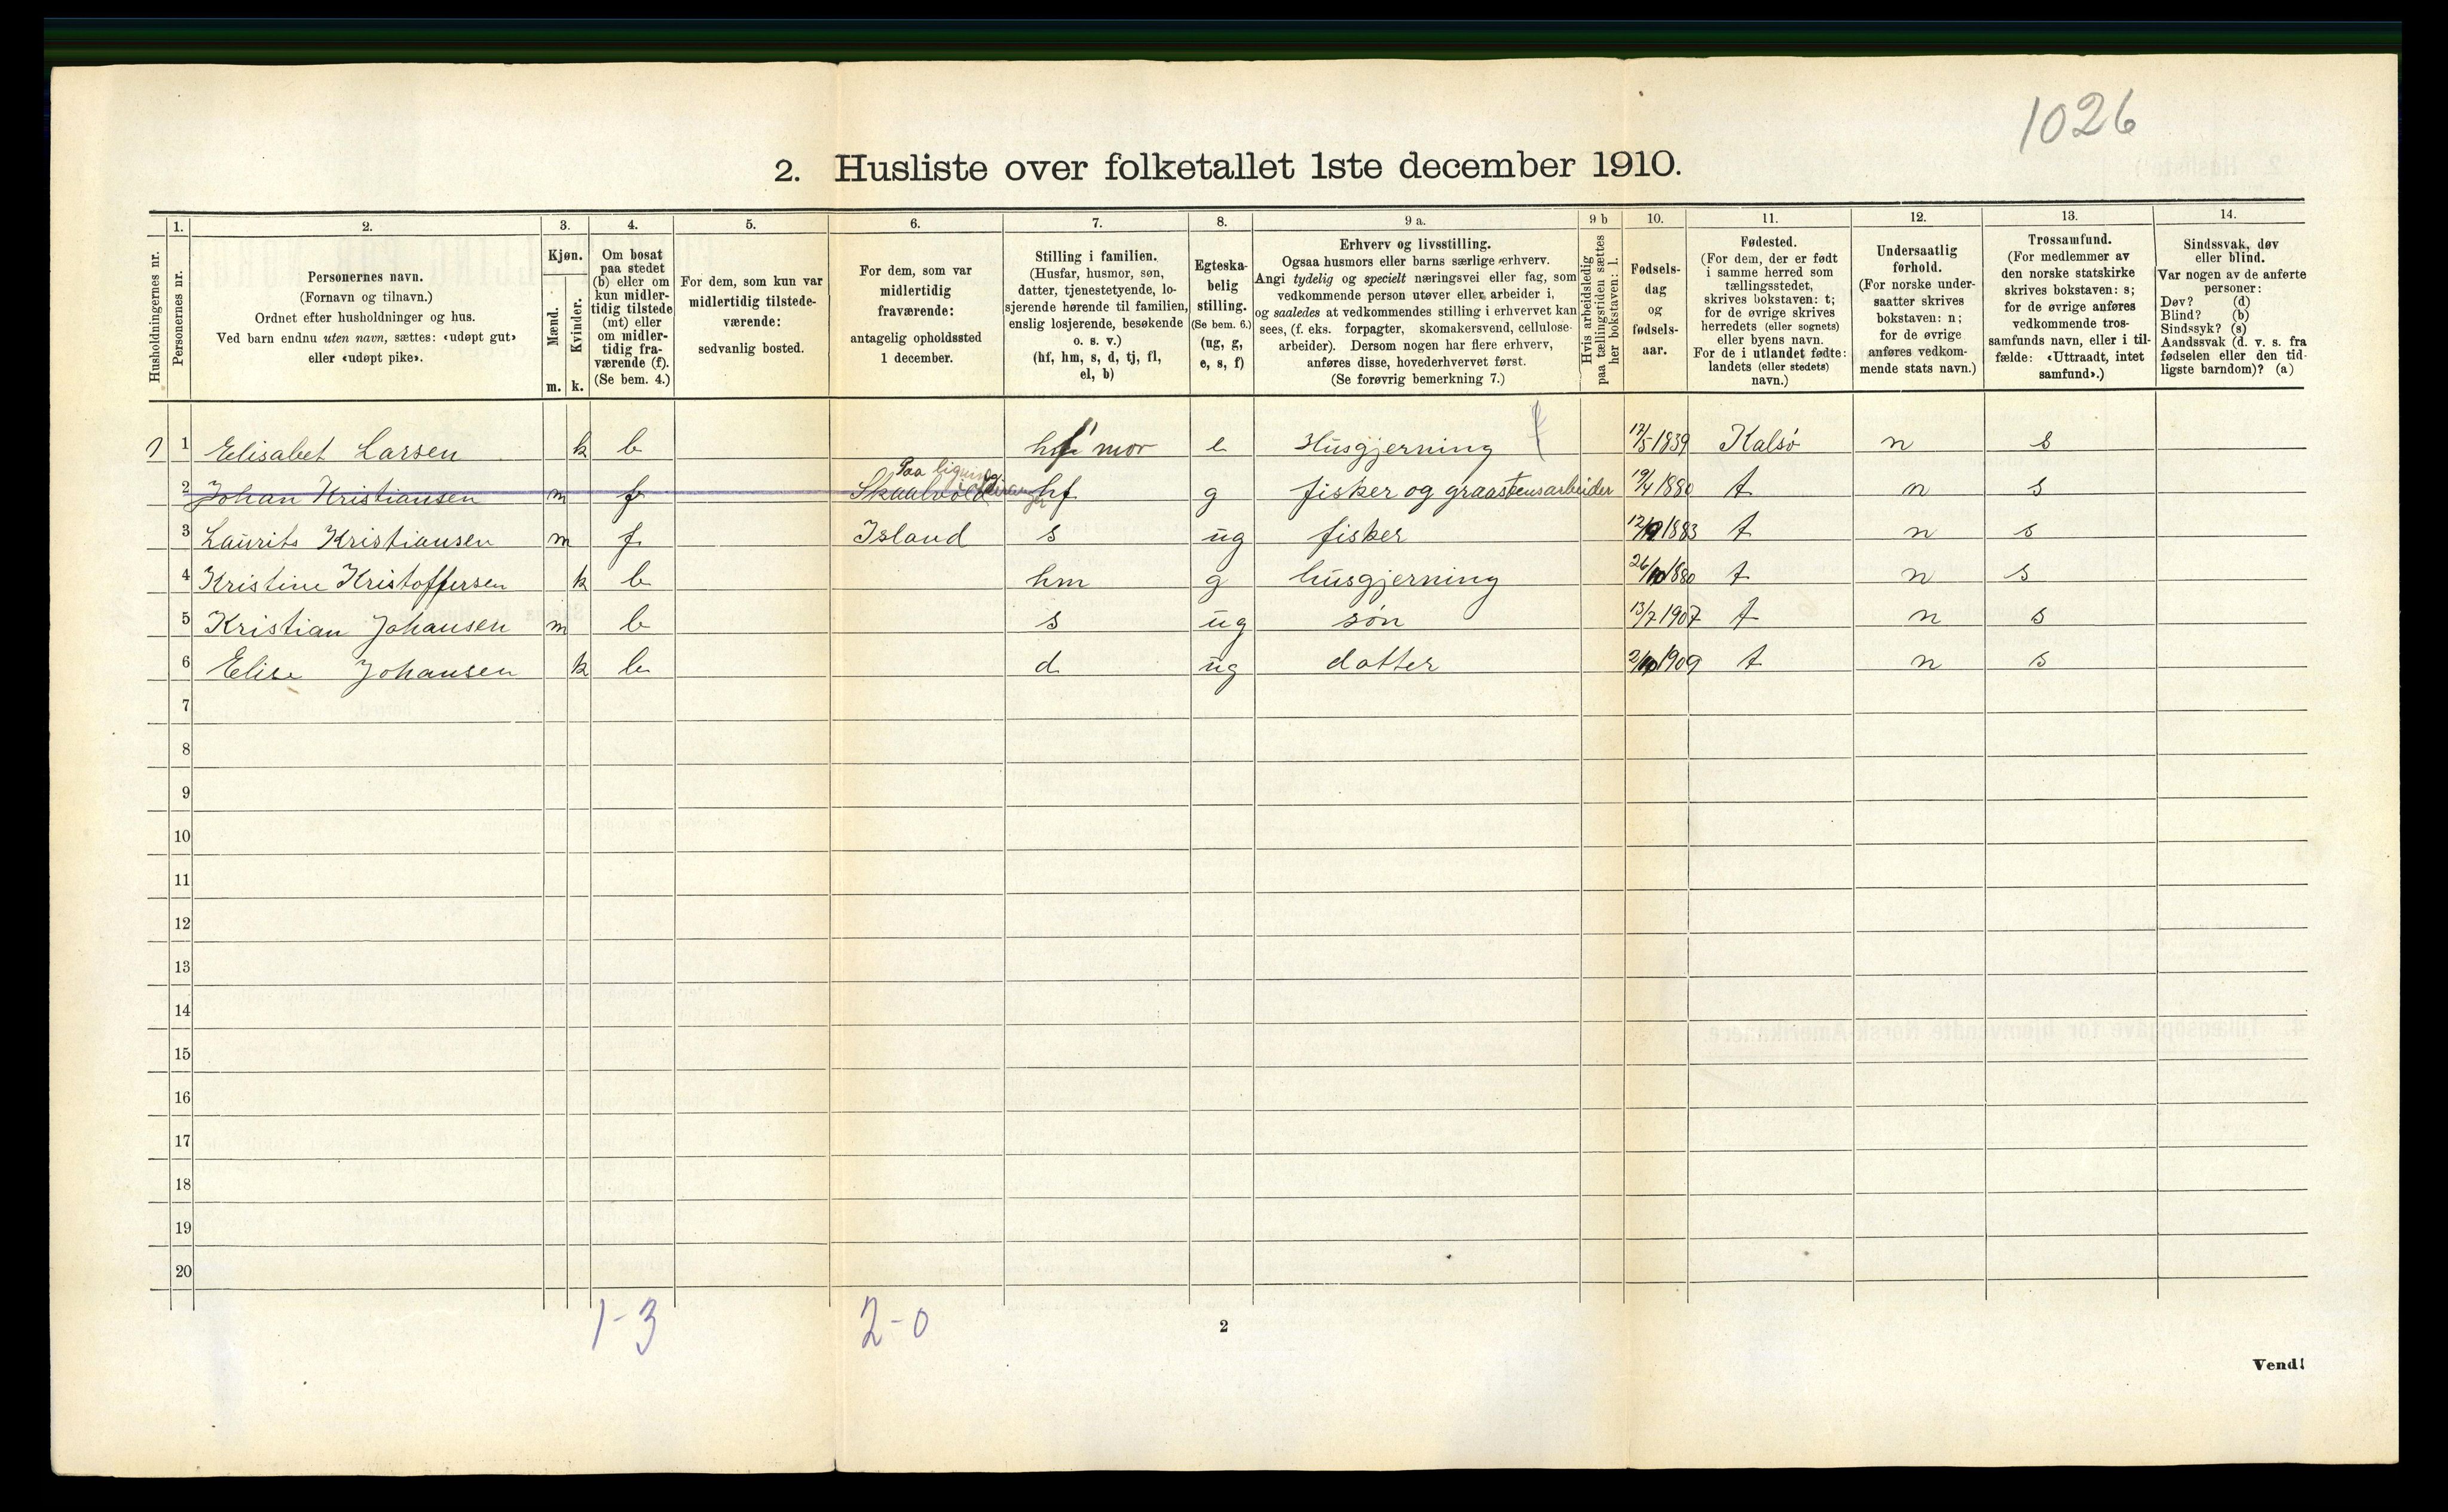 1026
2. Husliste over folketallet 1ste december 1910.
1. 2. 3. 4. 5. 6. 7. 8. 9 a. 9 b 10. 11. 12. 13. 14.
Husholdningernes nr.
Personernes nr.
Personernes navn.
(Fornavn og tilnavn.)
Ordnet efter husholdninger og hus.
Ved barn endnu uten navn, sættes: «udøpt gut»
eller «udøpt pike».
Kjøn.
Mænd.
Kvinder.
m. k.
Om bosat
paa stedet
(b) eller om
kun midler-
tidig tilstede
(mt) eller
om midler-
tidig fra-
værende (f).
(Se bem. 4.)
For dem, som kun var
midlertidig tilstede-
værende:
sedvanlig bosted.
For dem, som var
midlertidig
fraværende:
antagelig opholdssted
1 december.
Stilling i familien.
(Husfar, husmor, søn,
datter, tjenestetyende, lo-
sjerende hørende til familien,
enslig losjerende, besøkende
o. s. v.)
(hf, hm, s, d, tj, fl,
el, b)
Egteska-
belig
stilling.
(Se bem. 6.)
(ug, g,
e, s, f)
Erhverv og livsstilling.
Ogsaa husmors eller barns særlige erhverv.
Angi tydelig og specielt næringsvei eller fag, som
vedkommende person utøver eller arbeider i,
og saaledes at vedkommendes stilling i erhvervet kan
sees, (f. eks. forpagter, skomakersvend, cellulose-
arbeider). Dersom nogen har flere erhverv,
anføres disse, hovederhvervet først.
(Se forøvrig bemerkning 7.)
Hvis arbeidsledig
paa tællingstiden sættes
her bokstaven: l.
Fødsels-
dag
og
fødsels-
aar.
Fødested.
(For dem, der er født
i samme herred som
tællingsstedet,
skrives bokstaven: t;
for de øvrige skrives
herredets (eller sognets)
eller byens navn.
For de i utlandet fødte:
landets (eller stedets)
navn.)
Undersaatlig
forhold.
(For norske under-
saatter skrives
bokstaven: n;
for de øvrige
anføres vedkom-
mende stats navn.)
Trossamfund.
(For medlemmer av
den norske statskirke
skrives bokstaven: s;
for de øvrige anføres
vedkommende tros-
samfunds navn, eller i til-
fælde: «Uttraadt, intet
samfund».)
Sindssvak, døv
eller blind.
Var nogen av de anførte
personer:
Døv? (d)
Blind? (b)
Sindssyk? (s)
Aandssvak (d. v. s. fra
fødselen eller den tid-
ligste barndom)? (a)
1 1 Elisabet Larsen k b mor e Husgjerning 12/5 1839 Kalsö n s
2 Johan Kristiansen m f Skaalvold hf g fisker og graastensarbeider 19/4 1880 t n s
3 Laurits Kristiansen m f Island s ug fisker 1883 t n s
4 Kristine Kristoffersen k b hm g husgjerning 26/10 1880 t n s
5 Kristian Johansen m b s ug søn 13/7 1907 t n s
6 Elise Johansen k b d ug datter 2/10 1909 t n s
7
8
9
10
11
12
13
14
15
16
17
18
19
20
1-3 2-0
2
Vend!